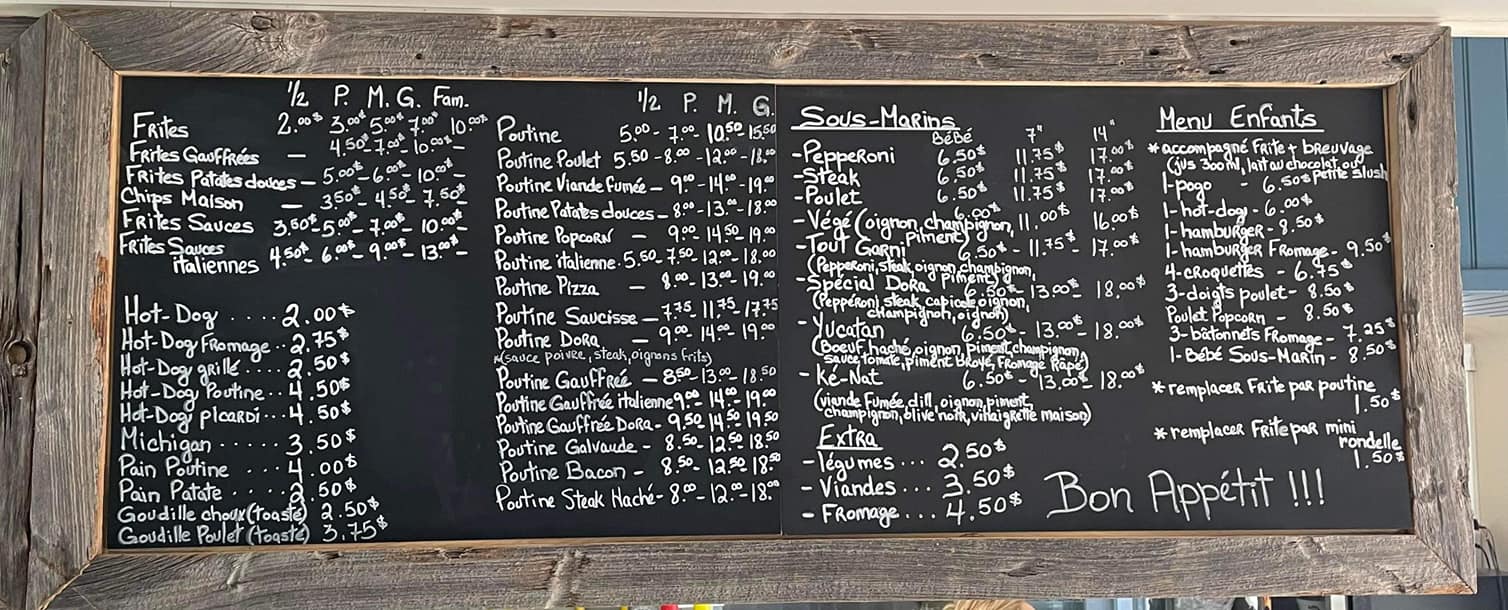 1/2 P. M. G. Fam.
Frites 2.00$ 3.00$ 5.00$ 7.00$ 10.00$
Frites Gauffrées — 4.50$ - 7.00$ - 10.00$ -
Frites Patates douces - 5.00$ - 6.00$ - 10.00$ -
Chips Maison — 3.50$ - 4.50$ - 7.50$
Frites Sauces 3.50$ - 5.00$ - 7.00$ - 10.00$ -
Frites Sauces
italiennes 4.50$ - 6.00$ - 9.00$ - 13.00$ -
Hot-Dog .... 2.00$
Hot-Dog Fromage .. 2.75$
Hot-Dog grillé .... 2.50$
Hot-Dog Poutine .. 4.50$
Hot-Dog Picardi ... 4.50$
Michigan ..... 3.50$
Pain Poutine ... 4.00$
Pain Patate .... 2.50$
Goudille choux (toasté) 2.50$
Goudille Poulet (toasté) 3.75$
1/2 P. M. G.
Poutine 5.00 - 7.00 - 10.50 - 15.50
Poutine Poulet 5.50 - 8.00 - 12.00 - 18.00
Poutine Viande fumée — 9.00 - 14.00 - 19.00
Poutine Patates douces - 8.00 - 13.00 - 18.00
Poutine Popcorn — 9.00 - 14.50 - 19.00
Poutine italienne - 5.50 - 7.50 12.00 - 18.00
Poutine Pizza — 8.00 - 13.00 - 19.00
Poutine Saucisse — 7.75 11.75 - 17.75
Poutine Dora — 9.00 - 14.00 - 19.00
(sauce poivre, steak, oignons frits)
Poutine Gauffrée — 8.50 - 13.00 - 18.50
Poutine Gauffrée italienne 9.00 - 14.00 - 19.00
Poutine Gauffrée Dora - 9.50 14.50 19.50
Poutine Galvaude - 8.50 - 12.50 18.50
Poutine Bacon - 8.50 - 12.50 18.50
Poutine Steak Haché - 8.00 - 12.00 - 18.00
Sous-Marins
Bébé 7" 14"
- Pepperoni 6.50$ 11.75$ 17.00$
- Steak 6.50$ 11.75$ 17.00$
- Poulet 6.50$ 11.75$ 17.00$
- Végé (oignon, champignon, 6.00$ 11.00$ 16.00$
Piment)
- Tout Garni 6.50$ - 11.75$ - 17.00$
(Pepperoni, steak, oignon, champignon,
Piment)
- Spécial Dora 6.50$ - 13.00$ - 18.00$
(Pepperoni, steak, capicole, oignon,
champignon, oignon)
- Yucatan 6.50$ - 13.00$ - 18.00$
(Boeuf haché, oignon, Piment, champignon,
sauce tomate, piment broyé, Fromage Rapé)
- Ké-Nat 6.50$ - 13.00$ - 18.00$
(viande Fumée, dill, oignon, piment,
champignon, olive noir, vinaigrette maison)
Extra
- légumes ... 2.50$
- Viandes ... 3.50$
- Fromage ... 4.50$
Menu Enfants
* accompagné Frite + breuvage
(jus 300ml, lait au chocolat, ou
petite slush
1-pogo - 6.50$
1-hot-dog - 6.00$
1-hamburger - 8.50$
1-hamburger Fromage - 9.50$
4-croquettes - 6.75$
3-doigts poulet - 8.50$
Poulet Popcorn - 8.50$
3-bâtonnets Fromage - 7.25$
1-Bébé Sous-Marin - 8.50$
* remplacer Frite par poutine
1.50$
* remplacer Frite par mini
rondelle
1.50$
Bon Appétit !!!